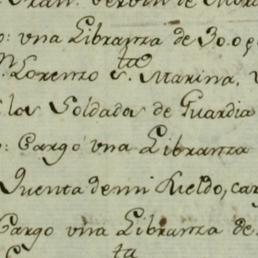 : vna Libranza de 30.00
Lorenzo S.ta Marina,
los Soldados de Guardia
: Cargó vna Libranza
Quenta demi Sueldo, car
Cargo vna Libranza de
ta